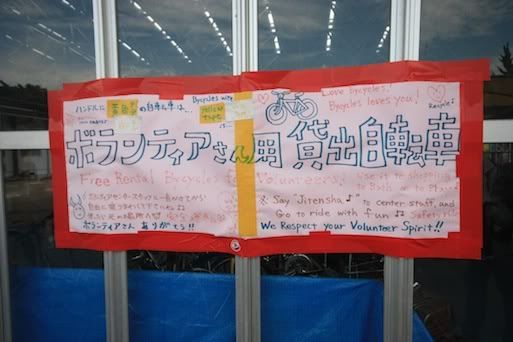 ハンドルに黄色テープの自転車は…
Bycycles with yellow tape is...
Love bycycles!
Bycycles loves you!
Recycle!
ボランティアさん用 貸出自転車
Free Rental Bycycles for Volunteers!
Use it to shopping
to Bath or to Play
ボランティアセンタースタッフに一声かけてから
※ Say "Jitensha♪" to center staff, and
Go to ride with fun ♫ Safety ride
ボランティアさん ありがとう!!
We Respect your Volunteer Spirit!!